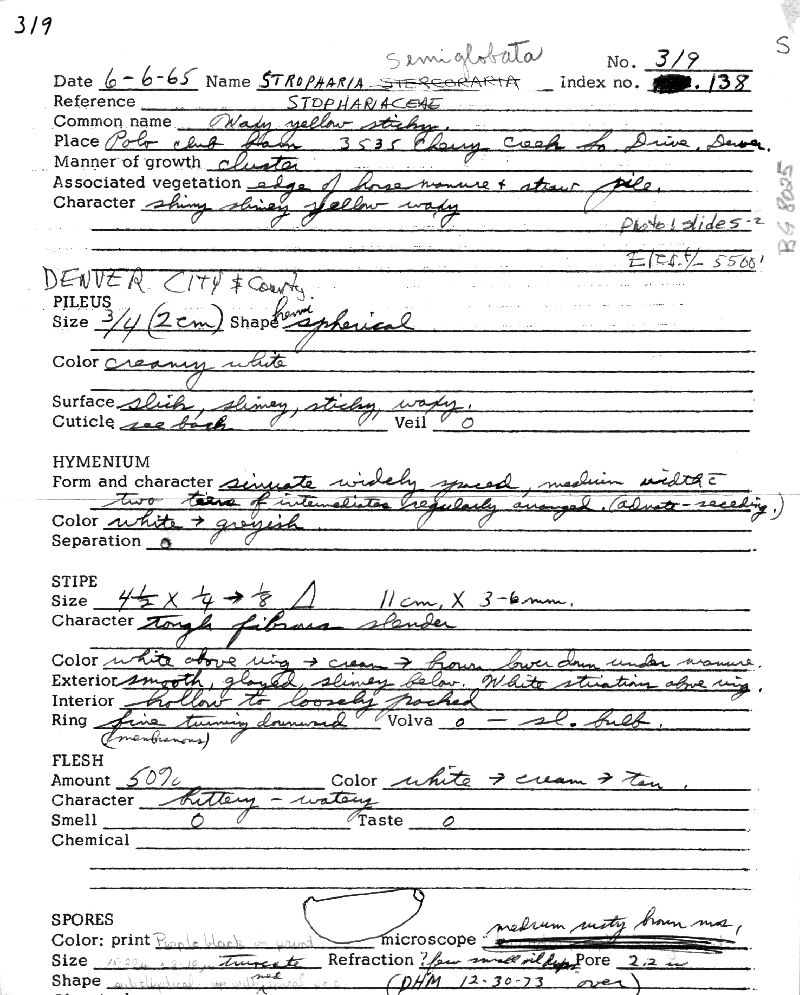 319
Semiglobata
No. 319
S
Date 6-6-65 Name STROPHARIA STERCORARIA Index no. .138
Reference STOPHARIACEAE
Common name Waxy yellow sticky.
Place Polo club barn 3535 Cherry Creek So. Drive, Denver.
Manner of growth cluster
Associated vegetation edge of horse manure & straw pile.
Character shiny slimey yellow waxy
BG 8025
Photo 1 slide 5-2
Elev. 5500'
DENVER CITY & County
PILEUS
Size 3/4 (2 cm) Shape hemispherical
Color creamy white
Surface slick, slimey, sticky, waxy.
Cuticle see back Veil 0
HYMENIUM
Form and character sinuate widely spaced, medium width c̄
two tiers of intermediates regularly arranged. (adnate-seceding.)
Color white → greyish
Separation 0
STIPE
Size 4½ X ¼ → ⅛ 11 cm. X 3-6 mm.
Character tough fibrous slender
Color white above ring → cream → brown lower down under manure.
Exterior smooth, glazed, slimey below. White striations above ring.
Interior hollow to loosely packed
Ring fine turning downward Volva 0 - sl. bulb.
(membranous)
FLESH
Amount 50% Color white → cream → tan.
Character buttery - watery
Smell 0 Taste 0
Chemical
SPORES
Color: print Purple black in print microscope medium rusty brown
Size truncate Refraction ? few small oil drops Pore 2.2 u
Shape (DHM 12-30-73 over)